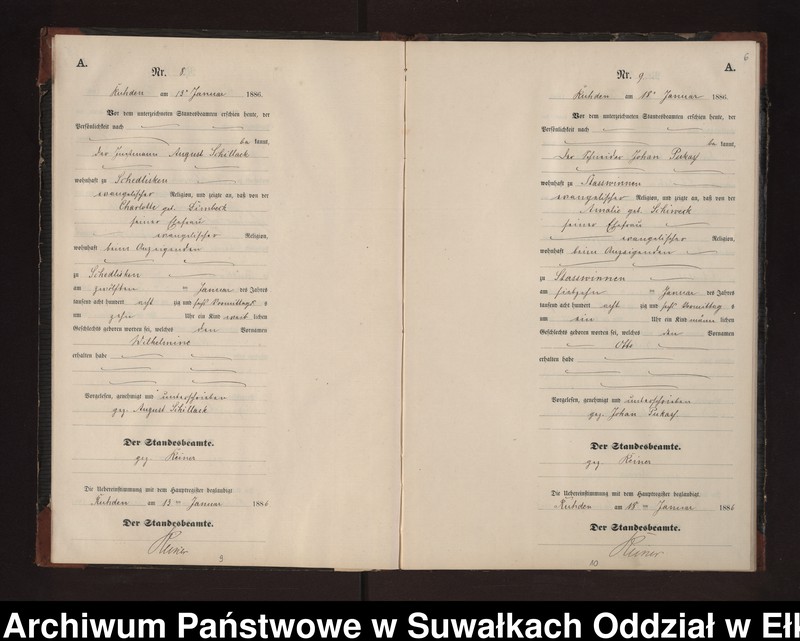 A.
Nr. 8.
am 13ten Januar 1886.
Vor dem unterzeichneten Standesbeamten erschien heute, der
Persönlichkeit nach
be kannt,
der August Schillack
wohnhaft zu Schedlisken
evangelischer Religion, und zeigte an, daß von der
Charlotte geb.
seiner Ehefrau
evangelischer Religion,
wohnhaft beim Anzeigenden
zu Schedlisken
am zwölften ten Januar des Jahres
tausend acht hundert acht zig und sechs Vormittags
um zehn Uhr ein Kind weib lichen
Geschlechts geboren worden sei, welches den Vornamen
Wilhelmine
erhalten habe
Vorgelesen, genehmigt und unterschrieben
gez. August Schillack
Der Standesbeamte.
gez.
Die Uebereinstimmung mit dem Hauptregister beglaubigt
am 13 ten Januar 1886
Der Standesbeamte.
9
6
A.
Nr. 9.
am 18ten Januar 1886.
Vor dem unterzeichneten Standesbeamten erschien heute, der
Persönlichkeit nach
be kannt,
Der Schneider Johan
wohnhaft zu Stasswinnen
evangelischer Religion, und zeigte an, daß von der
Amalie geb.
seiner Ehefrau
evangelischer Religion,
wohnhaft beim Anzeigenden
zu Stasswinnen
am ten Januar des Jahres
tausend acht hundert acht zig und sechs Vormittag s
um ein Uhr ein Kind männ lichen
Geschlechts geboren worden sei, welches den Vornamen
Otto
erhalten habe
Vorgelesen, genehmigt und unterschrieben
gez. Johan
Der Standesbeamte.
gez.
Die Uebereinstimmung mit dem Hauptregister beglaubigt
am 18 ten Januar 1886
Der Standesbeamte.
10
Archiwum Państwowe w Suwałkach Oddział w Eł